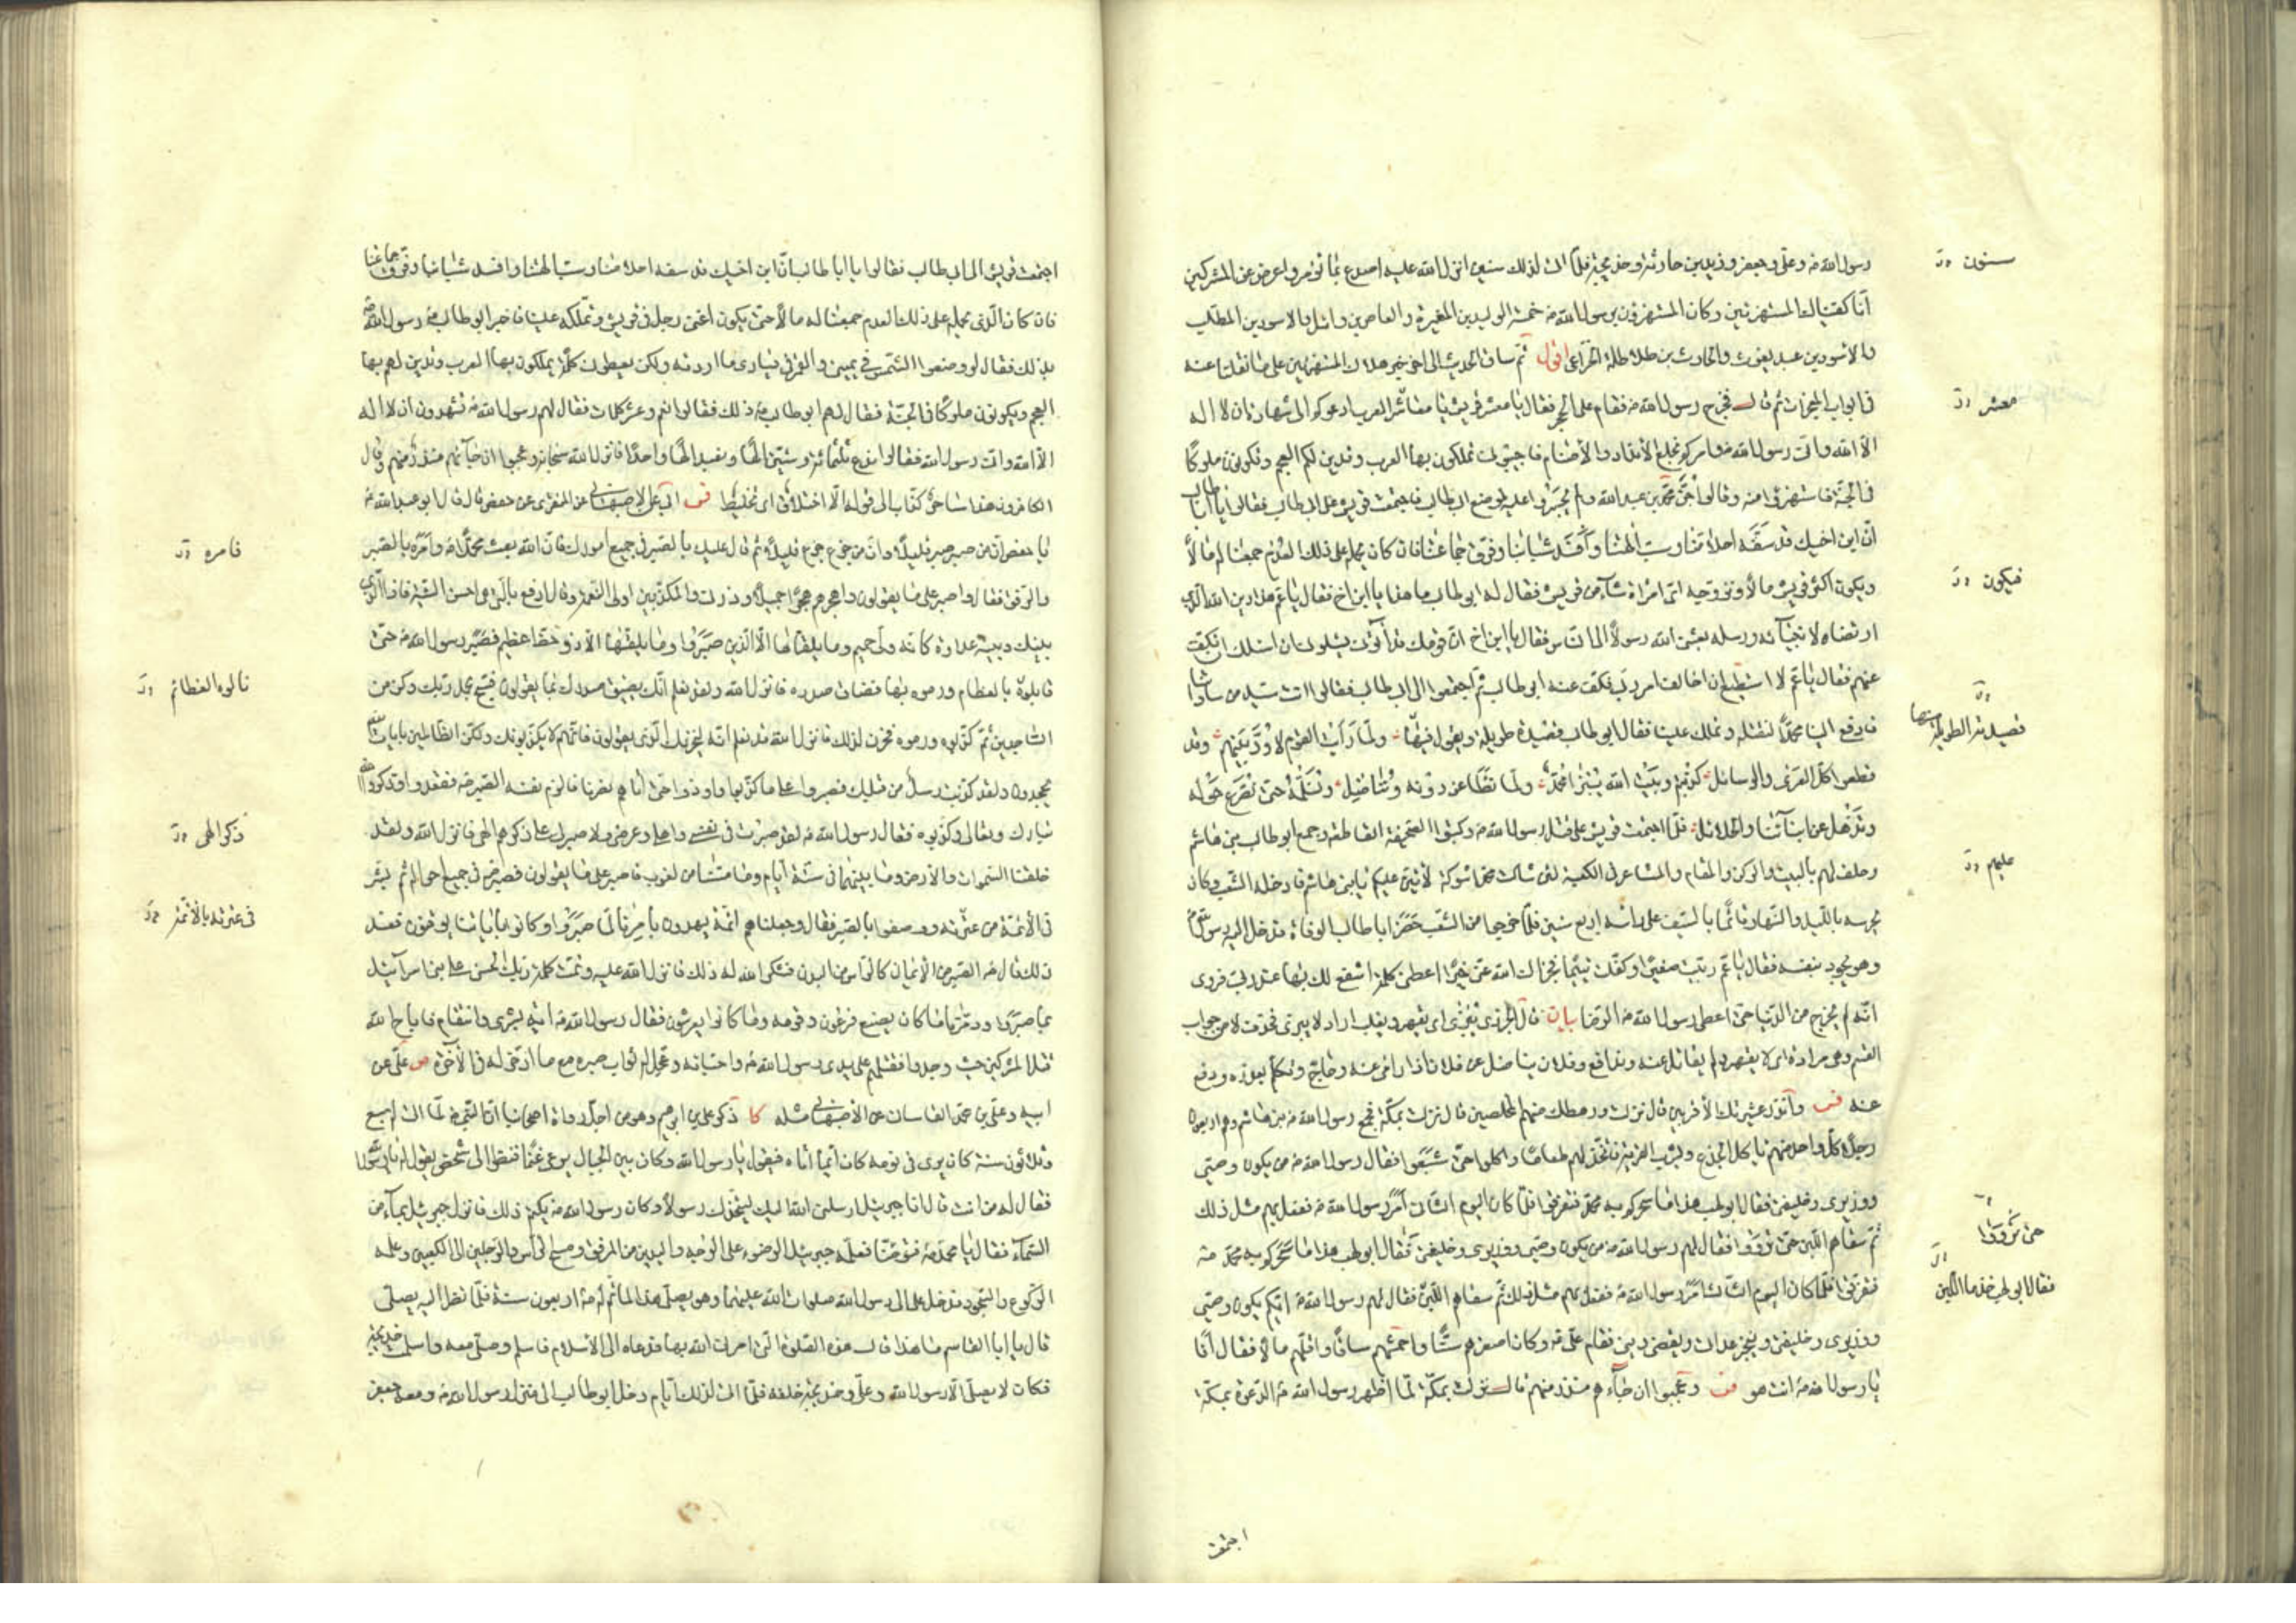 رسول الله ص وعلي وجعفر وزيد بن حارثة وخديجة فلما اتى لذلك سنين انزل الله عليه اصدع بما تؤمر واعرض عن المشركين
انا كفيناك المستهزئين وكان المستهزؤن برسول الله ص خمسة الوليد بن المغيرة والعاص بن وائل والاسود بن المطلب
والاسود بن عبد يغوث والحارث بن طلاطلة الخزاعي اقول ثم ساق الحديث الى اخر خبر هلاك المستهزئين على ما نقلنا عنه
في ابواب المعجزات ثم قال فخرج رسول الله ص فقام على الحجر فقال يا معشر قريش يا معاشر العرب ادعوكم الى شهادة ان لا اله
الا الله واني رسول الله ص وامركم بخلع الانداد والاصنام فاجيبوني تملكون بها العرب وتدين لكم العجم وتكونون ملوكا
في الجنة فاستهزؤا منه وقالوا جن محمد بن عبد الله ولم يجسروا عليه لموضع ابي طالب فاجتمعت قريش على ابي طالب فقالوا يا ابا طالب
ان ابن اخيك قد سفه احلامنا وسب الهتنا وافسد شباننا وفرق جماعتنا فان كان يحمله على ذلك العدم جمعنا له مالا
ويكون اكثر قريش مالا ونزوجه اي امراة شاء من قريش فقال له ابو طالب ما هذا يا ابن اخ فقال يا عم هذا دين الله الذي
ارتضاه لانبيائه ورسله بعثني الله رسولا الى الناس فقال يا ابن اخ ان قومك قد اتوني يسئلوني ان اسئلك ان تكف
عنهم فقال يا عم لا استطيع ان اخالف امر ربي فكف عنه ابو طالب ثم اجتمعوا الى ابي طالب فقالوا انت سيد من ساداتنا
فادفع الينا محمدا لنقتله وتملك علينا فقال ابو طالب قصيدة طويلة ويقول فيها ولما رأيت القوم لا ود بينهم وقد
قطعوا كل العرى والوسائل كذبتم وبيت الله يبزى محمد ولما نطاعن دونه ونناضل ونسلمه حتى نصرع حوله
ونذهل عن ابنائنا والحلائل فلما اجتمعت قريش على قتل رسول الله ص وكتبوا الصحيفة القاطعة جمع ابو طالب بني هاشم
وحلف لهم بالبيت والركن والمقام والمشاعر في الكعبة لئن شاكت محمدا شوكة لاثبن عليكم يا بني هاشم فادخله الشعب وكان
يحرسه بالليل والنهار قائما بالسيف على راسه اربع سنين فلما خرجوا من الشعب حضرت ابا طالب الوفاة فدخل اليه رسول الله ص
وهو يجود بنفسه فقال يا عم ربيت صغيرا وكفلت يتيما فجزاك الله عني خيرا اعطني كلمة اشفع لك بها عند ربي فروى
انه لم يخرج من الدنيا حتى اعطى رسول الله ص الرضا بيان قال الجزري يبزى اي يقهر ويغلب اراد لا يبزى فحذف لا من جواب
القسم وهي مرادة اي لا يقهر ولم نقاتل عنه وندافع وفلان يناضل عن فلان اذا رامى عنه وحاجج وتكلم بعذره ودفع
عنه فس وانذر عشيرتك الاقربين قال نزلت ورهطك منهم المخلصين قال نزلت بمكة فجمع رسول الله ص بني هاشم وهم اربعون
رجلا كل واحد منهم ياكل الجذع ويشرب القربة فاتخذ لهم طعاما واكلوا حتى شبعوا فقال رسول الله ص من يكون وصيي
ووزيري وخليفتي فقال ابو لهب هذا ما سحركم به محمد فتفرقوا فلما كان اليوم الثاني امر رسول الله ص ففعل بهم مثل ذلك
ثم سقاهم اللبن حتى رووا فقال لهم رسول الله ص من يكون وصيي ووزيري وخليفتي فقال ابو لهب هذا ما سحركم به محمد ص
فتفرقوا فلما كان اليوم الثالث امر رسول الله ص ففعل بهم مثل ذلك ثم سقاهم اللبن فقال لهم رسول الله ص ايكم يكون وصيي
ووزيري وخليفتي وينجز عداتي ويقضي ديني فقام علي ع وكان اصغرهم سنا واحمشهم ساقا واقلهم مالا فقال انا
يا رسول الله ص انت هو فس وعجبوا ان جاءهم منذر منهم قال نزلت بمكة لما اظهر رسول الله ص الدعوة بمكة
اجتمعت
سنون
معشر
فيكون
قصيدته الطويلة منها
عليهم
حتى تروّوا
فقال ابو لهب خذما اللبن
اجتمعت قريش الى ابي طالب فقالوا يا ابا طالب ان ابن اخيك قد سفه احلامنا وسب الهتنا وافسد شباننا وفرق جماعتنا
فان كان الذي يحمله على ذلك العدم جمعنا له مالا حتى يكون اغنى رجل في قريش ونملكه علينا فاخبر ابو طالب رسول الله ص
بذلك فقال لو وضعوا الشمس في يميني والقمر في يساري ما اردته ولكن يعطوني كلمة يملكون بها العرب وتدين لهم بها
العجم ويكونون ملوكا في الجنة فقال لهم ابو طالب ذلك فقالوا نعم وعشر كلمات فقال لهم رسول الله ص تشهدون ان لا اله
الا الله واني رسول الله فقالوا ندع ثلثمائة وستين الها ونعبد الها واحدا فانزل الله سبحانه وعجبوا ان جاءهم منذر منهم وقال
الكافرون هذا ساحر كذاب الى قوله الا اختلاق اي تخليط فس ابي عن الاصبهاني عن المنقري عن حفص قال قال ابو عبد الله ع
يا حفص ان من صبر صبر قليلا وان من جزع جزع قليلا ثم قال عليك بالصبر في جميع امورك فان الله بعث محمدا ص وامره بالصبر
والرفق فقال واصبر على ما يقولون واهجرهم هجرا جميلا وذرني والمكذبين اولي النعمة وقال ادفع بالتي هي احسن السيئة فاذا الذي
بينك وبينه عداوة كانه ولي حميم وما يلقاها الا الذين صبروا وما يلقيها الا ذو حظ عظيم فصبر رسول الله ص حتى
قابلوه بالعظام ورموه بها فضاق صدره فانزل الله ولقد نعلم انك يضيق صدرك بما يقولون فسبح بحمد ربك وكن من
الساجدين ثم كذبوه ورموه فحزن لذلك فانزل الله قد نعلم انه ليحزنك الذي يقولون فانهم لا يكذبونك ولكن الظالمين بايات الله
يجحدون ولقد كذبت رسل من قبلك فصبروا على ما كذبوا واوذوا حتى اتاهم نصرنا فالزم نفسه الصبر ص فقعدوا وذكروا الله
تبارك وتعالى وكذبوه فقال رسول الله ص لقد صبرت في نفسي واهلي وعرضي ولا صبر لي على ذكرهم الهي فانزل الله ولقد
خلقنا السموات والارض وما بينهما في ستة ايام وما مسنا من لغوب فاصبر على ما يقولون فصبر ص في جميع احواله ثم بشر
في الائمة من عترته ووصفوا بالصبر فقال وجعلناهم ائمة يهدون بامرنا لما صبروا وكانوا باياتنا يوقنون فعند
ذلك قال ص الصبر من الايمان كالراس من البدن فشكر الله له ذلك فانزل الله عليه وتمت كلمة ربك الحسنى على بني اسرآئيل
بما صبروا ودمرنا ما كان يصنع فرعون وقومه وما كانوا يعرشون فقال رسول الله ص اية بشرى وانتقام فاباح الله
قتل المشركين حيث وجدوا فقتلهم على يدي رسول الله ص واحبائه وعجل له ثواب صبره مع ما ادخر له في الآخرة ص علي عن
ابيه وعلي بن محمد القاساني عن الاصبهاني مثله كا ذكر علي بن ابرهيم وهو من اجل رواة اصحابنا ان النبي ص لما اتى له سبع
وثلاثون سنة كان يرى في نومه كان آتيا اتاه فيقول يا رسول الله وكان بين الجبال يرعى غنما فنظر الى شخص يقول له يا رسول الله
فقال له من انت قال انا جبرئيل ارسلني الله اليك ليتخذك رسولا وكان رسول الله ص يكتم ذلك فانزل جبرئيل بماء من
السماء فقال يا محمد قم فتوضأ فعلمه جبرئيل الوضوء على الوجه واليدين من المرفق ومسح الراس والرجلين الى الكعبين وعلمه
الركوع والسجود فدخل علي الى رسول الله صلوات الله عليهما وهو يصلي هذا لما تم له ص اربعون سنة فلما نظر اليه يصلي
قال يا ابا القاسم ما هذا قال هذه الصلوة التي امرني الله بها فدعاه الى الاسلام فاسلم وصلى معه واسلمت خديجة
فكان لا يصلي الا رسول الله وعلي وخديجة خلفه فلما اتى لذلك ايام دخل ابو طالب الى منزل رسول الله ص ومعه جعفر
فامره
نالوه العظائم
ذكر الهي
في عترته بالائمة